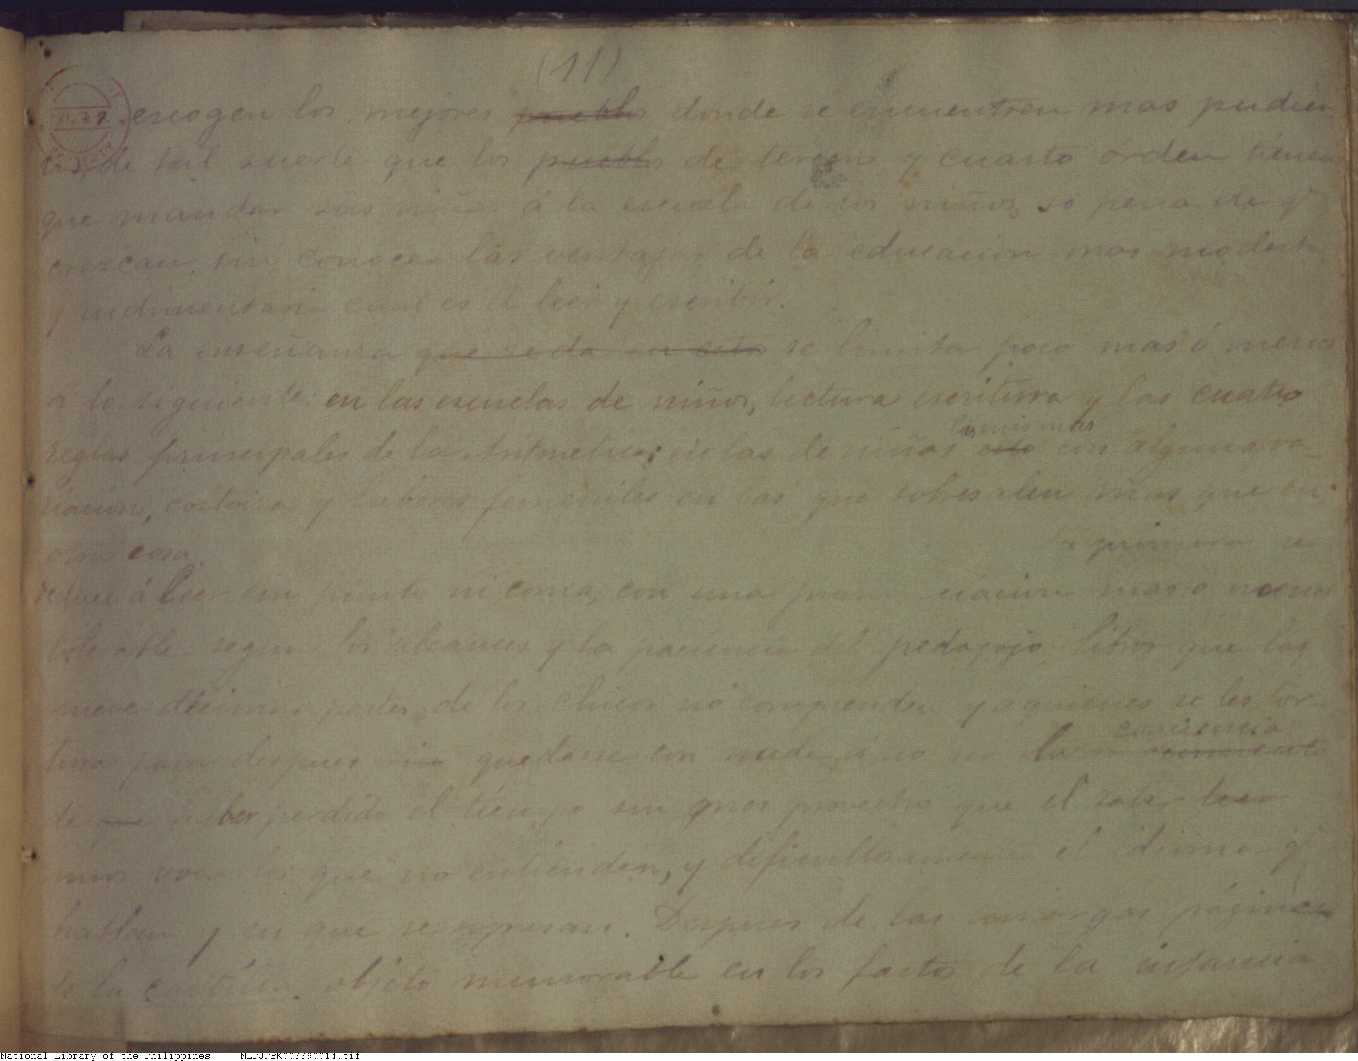 (11)
escogen los mejores pueblos donde se encuentren mas pudien-
tes, de tal suerte que los pueblos de tercero y cuarto órden tienen
que mandar sus niñas á la escuela de los niños, so pena de q'
crezcan sin conocer las ventajas de la educacion mas modesta
y rudimentaria cual es el leer y escribir.
La enseñanza que se da en esto se limita poco mas ó menos
á lo siguiente: en las escuelas de niños, lectura escritura y las cuatro
las mismas
reglas principales de la Aritmetica; en las de niñas esto con alguna va-
riacion, costura y labores femeniles en las que sobresalen mas que en
otra cosa.
la primera se
reduce á leer sin punto ni coma, con una pronunciacion mas o menos
tolerable segun los alcances y la paciencia del pedagogo, libros que las
nueve décimas partes de los chicos no comprenden y a quienes se les tor-
conciencia
tura para despues quedarse con nada, sino es la
de haber perdido el tiempo sin mas provecho que el saber leer
que no entienden, y dificultosamente el idioma q'
hablan y en que se expresan. Despues de las amargas páginas
de la cartilla, objeto memorable en los fastos de la infancia
National Library of the Philippines